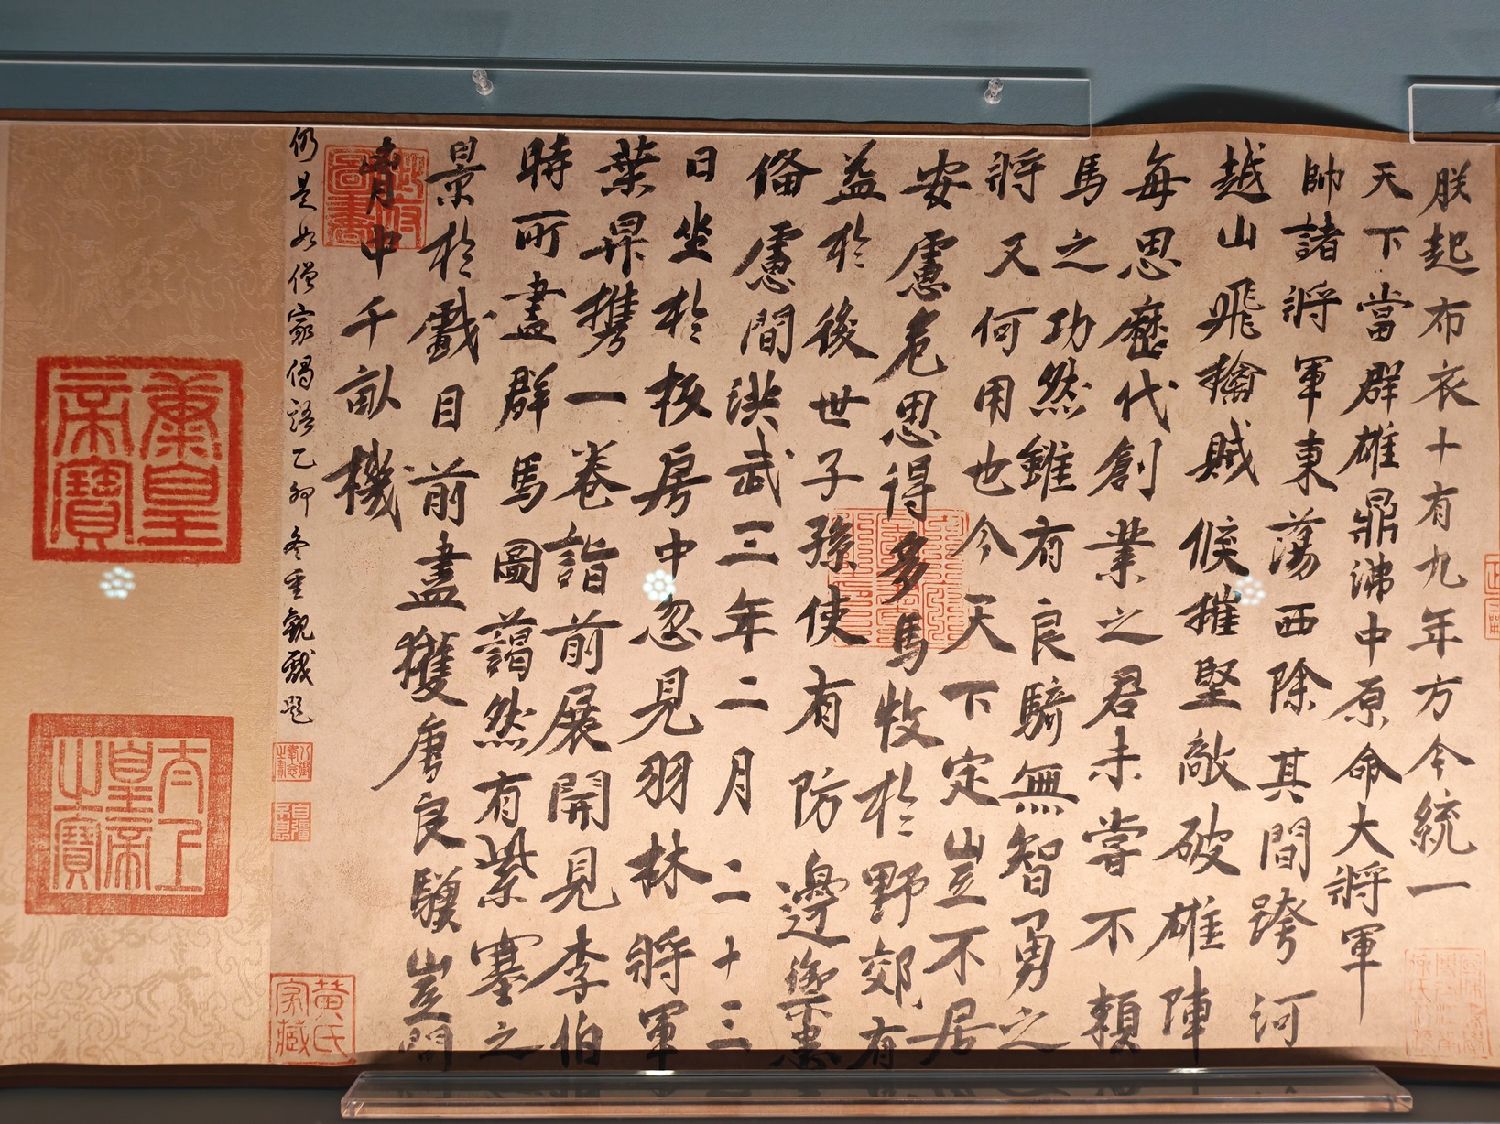 朕起布衣十有九年方今統一
天下當群雄鼎沸中原命大將軍
帥諸將軍東蕩西除其間跨河
越山飛擒賊候摧堅敵破雄陣
每思歷代創業之君未嘗不賴
馬之功然雖有良騎無智勇之
將又何用也今天下定豈不居
安慮危思得多馬牧於野郊有
益於後世子孫使有防邊禦患
備慮間洪武三年二月二十三
日坐於板房中忽見羽林將軍
葉昇攜一卷詣前展開見李伯
時所畫群馬圖藹然有紫塞之
景於戲目前盡獲唐良驥豈問
青中千畝機
仍是如僧家偈語乙卯冬重觀戲題
黃氏家藏
太上皇帝之寶